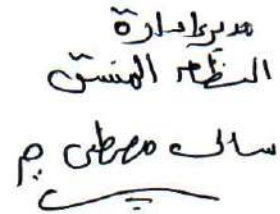 مدير إدارة
النظام المنسق
سالى مصطفى م